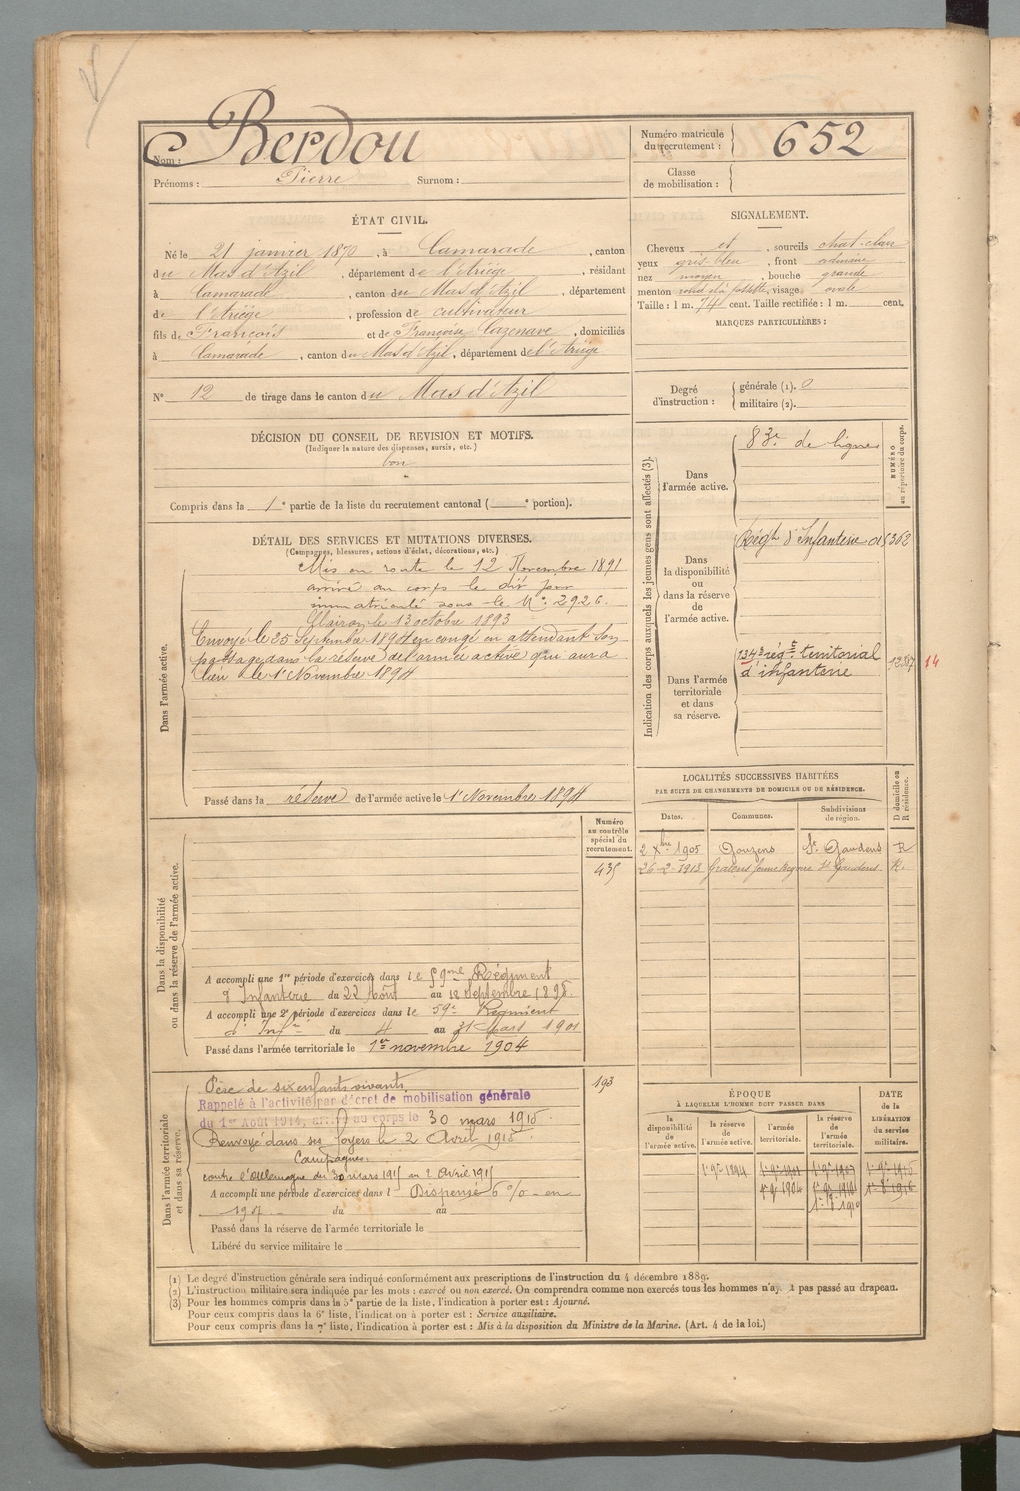 Nom : Berdou
Prénoms : Pierre Surnom :
Numéro matricule du recrutement : 652
Classe de mobilisation :
ÉTAT CIVIL.
Né le 21 janvier 1870, à Camarade, canton
du Mas d'Azil, département de l'Ariège, résidant
à Camarade, canton du Mas d'Azil, département
de l'Ariège, profession de cultivateur
fils de François et de Françoise Cazenave, domiciliés
à Camarade, canton du Mas d'Azil, département de l'Ariège
SIGNALEMENT.
Cheveux et, sourcils chat-clair
yeux gris bleu, front ordinaire
nez moyen, bouche grande
menton rond et à fossette, visage ovale
Taille : 1 m. 74 cent. Taille rectifiée : 1 m. cent.
MARQUES PARTICULIÈRES :
N° 12 de tirage dans le canton du Mas d'Azil
Degré d'instruction : générale (1). 0
militaire (2).
DÉCISION DU CONSEIL DE REVISION ET MOTIFS.
(Indiquer la nature des dispenses, sursis, etc.)
bon
Compris dans la 1e partie de la liste du recrutement cantonal ( e portion).
DÉTAIL DES SERVICES ET MUTATIONS DIVERSES.
(Campagnes, blessures, actions d'éclat, décorations, etc.)
Dans l'armée active.
Mis en route le 12 Novembre 1891
arrivé au corps le dit jour
immatriculé sous le N° 2926.
Clairon le 13 octobre 1893
Envoyé le 25 Septembre 1894 en congé en attendant son
passage dans la réserve de l'armée active qui aura
lieu le 1er Novembre 1894
Passé dans la réserve de l'armée active le 1er Novembre 1894
Indication des corps auxquels les jeunes gens sont affectés (3).
NUMÉRO au répertoire du corps.
Dans l'armée active.
83e de ligne
Dans la disponibilité ou dans la réserve de l'armée active.
Régt d'Infanterie de
5362
Dans l'armée territoriale et dans sa réserve.
134e régt territorial
d'infanterie
14
LOCALITÉS SUCCESSIVES HABITÉES
PAR SUITE DE CHANGEMENTS DE DOMICILE OU DE RÉSIDENCE.
D domicile ou R résidence.
Dates. Communes. Subdivisions de région.
2 Xbre 1905 Gouzens St Gaudens R
26-2-1913 Gratens St Gaudens R.
Numéro au contrôle spécial du recrutement.
435
Dans la disponibilité ou dans la réserve de l'armée active.
A accompli une 1re période d'exercices dans le 59eme Régiment
d'Infanterie du 22 Août au 18 Septembre 1898.
A accompli une 2e période d'exercices dans le 59e Régiment
d'Infie du 4 au 31 Mars 1901
Passé dans l'armée territoriale le 1er novembre 1904
193
Dans l'armée territoriale et dans sa réserve.
Père de six enfants vivants.
Rappelé à l'activité par décret de mobilisation générale
du 1er Août 1914, arrivé au corps le 30 mars 1915
Renvoyé dans ses foyers le 2 Avril 1915.
Campagnes:
contre l'Allemagne du 30 mars 1915 au 2 Avril 1915
A accompli une période d'exercices dans l Dispensé 6 % en
1907. du au
Passé dans la réserve de l'armée territoriale le
Libéré du service militaire le
ÉPOQUE
À LAQUELLE L'HOMME DOIT PASSER DANS
DATE de la LIBÉRATION du service militaire.
la disponibilité de l'armée active.
la réserve de l'armée active.
l'armée territoriale.
la réserve de l'armée territoriale.
1er 9bre 1894
1er 9bre 1904
(1) Le degré d'instruction générale sera indiqué conformément aux prescriptions de l'instruction du 4 décembre 1889.
(2) L'instruction militaire sera indiquée par les mots : exercé ou non exercé. On comprendra comme non exercés tous les hommes n'ay. t pas passé au drapeau.
(3) Pour les hommes compris dans la 5e partie de la liste, l'indication à porter est : Ajourné.
Pour ceux compris dans la 6e liste, l'indication à porter est : Service auxiliaire.
Pour ceux compris dans la 7e liste, l'indication à porter est : Mis à la disposition du Ministre de la Marine. (Art. 4 de la loi.)